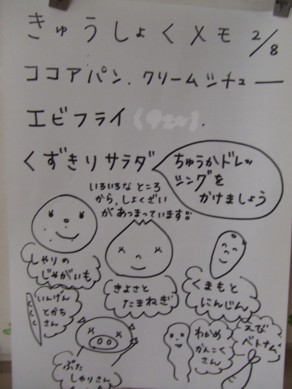 きゅうしょくメモ 2/8
ココアパン.クリームシチュー
エビフライ
くずきりサラダ
ちゅうかドレッ
シングを
かけましょう
いろいろなところ
から、しょくざい
があつまっています!!
しゃりの
じゃがいも
きよさと
たまねぎ
くまもと
にんじん
いんげん
とかち
さん
ぶた
しゃりさん
わかめ
かんこく
さん
えび
ベトナム